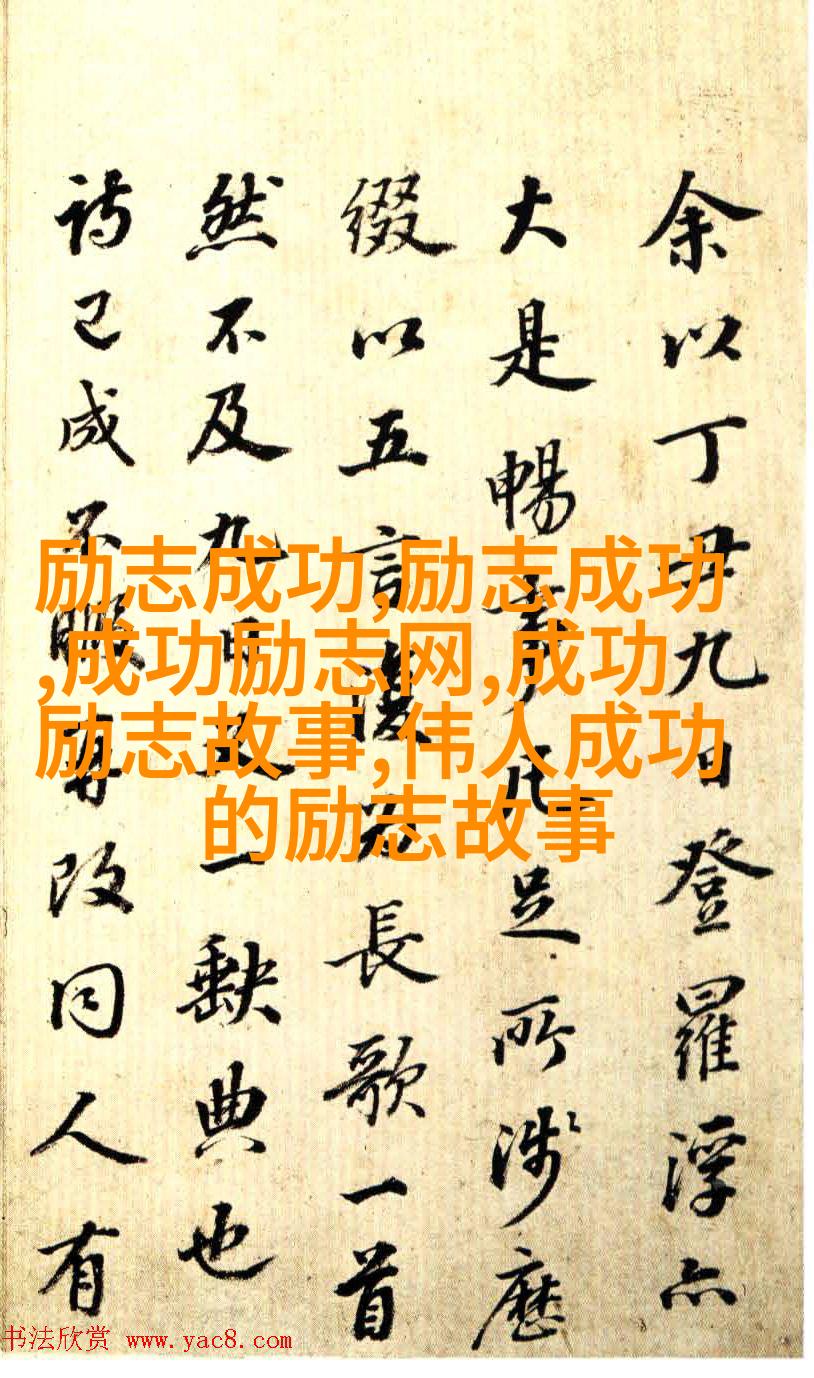 余以丁丑九日登羅浮亦
大是暢事凡足所涉歷
綴以五言復為長歌一首
然不及九日又一缺典也
詩已成不暇再改同人有
励志成功,励志成功
,成功励志网,成功
励志故事,伟人成功
的励志故事
书法欣赏 www.yac8.com